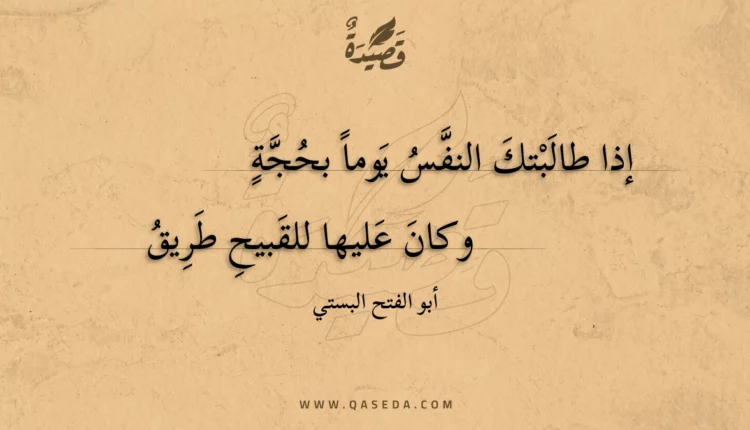 قَصِيدَةٌ
إذا طالَبْتكَ النفَّسُ يَوماً بحُجَّةٍ
وكانَ عَليها للقَبيحِ طَرِيقُ
أبو الفتح البستي
WWW.QASEDA.COM